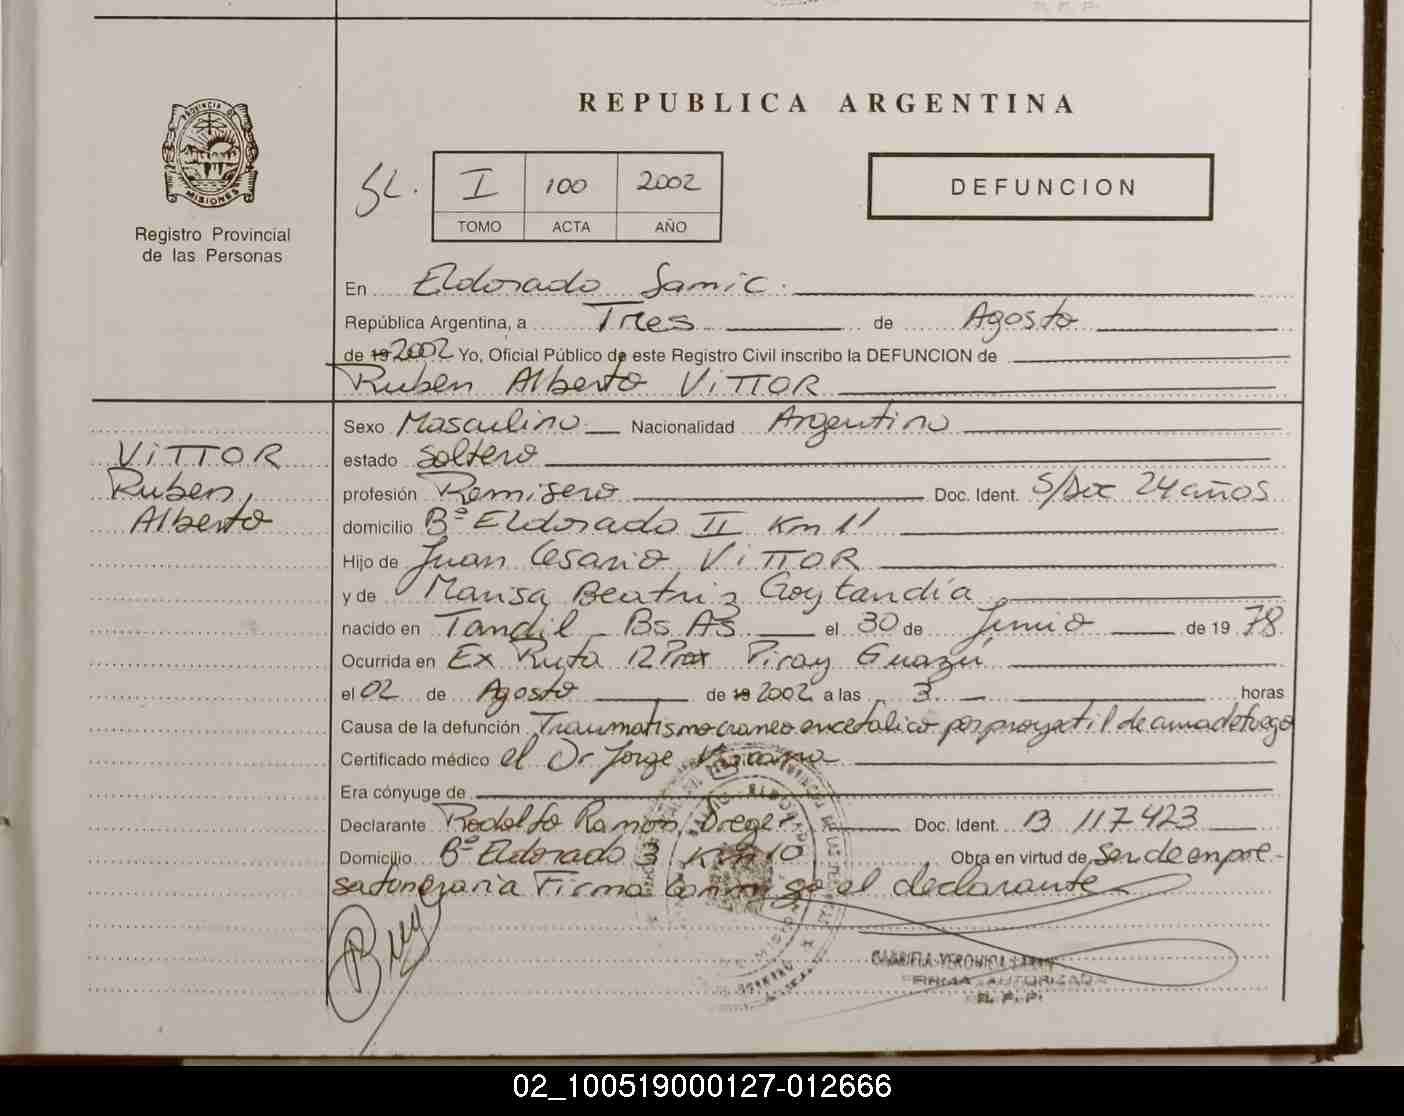 REPUBLICA ARGENTINA
PROVINCIA DE
MISIONES
Registro Provincial
de las Personas
I 100 2002
TOMO ACTA AÑO
DEFUNCION
En Eldorado Samic.
República Argentina, a Tres de Agosto
de 19 2002 Yo, Oficial Público de este Registro Civil inscribo la DEFUNCION de
Ruben Alberto VITTOR
VITTOR
Ruben,
Alberto
Sexo Masculino Nacionalidad Argentino
estado soltero
profesión Remisero Doc. Ident. S/Doc 24 años
domicilio Bº Eldorado II Km 11
Hijo de Juan Cesario VITTOR
y de Marisa Beatriz Goytandía
nacido en Tandil Bs As el 30 de Junio de 19 78
Ocurrida en Ex Ruta 12 Piray Guazú
el 02 de Agosto de 19 2002 a las 3 horas
Causa de la defunción Traumatismo craneo encefalico por proyectil de arma de fuego
Certificado médico el Dr Jorge
Era cónyuge de
Declarante Rodolfo Ramón Dreger Doc. Ident. 13 117 423
Domicilio Bº Eldorado 3 Km 10 Obra en virtud de Ser de empre-
sa funeraria Firma conmigo el declarante
GABRIELA VERONICA
FIRMA AUTORIZADA
R. P. P.
02_100519000127-012666